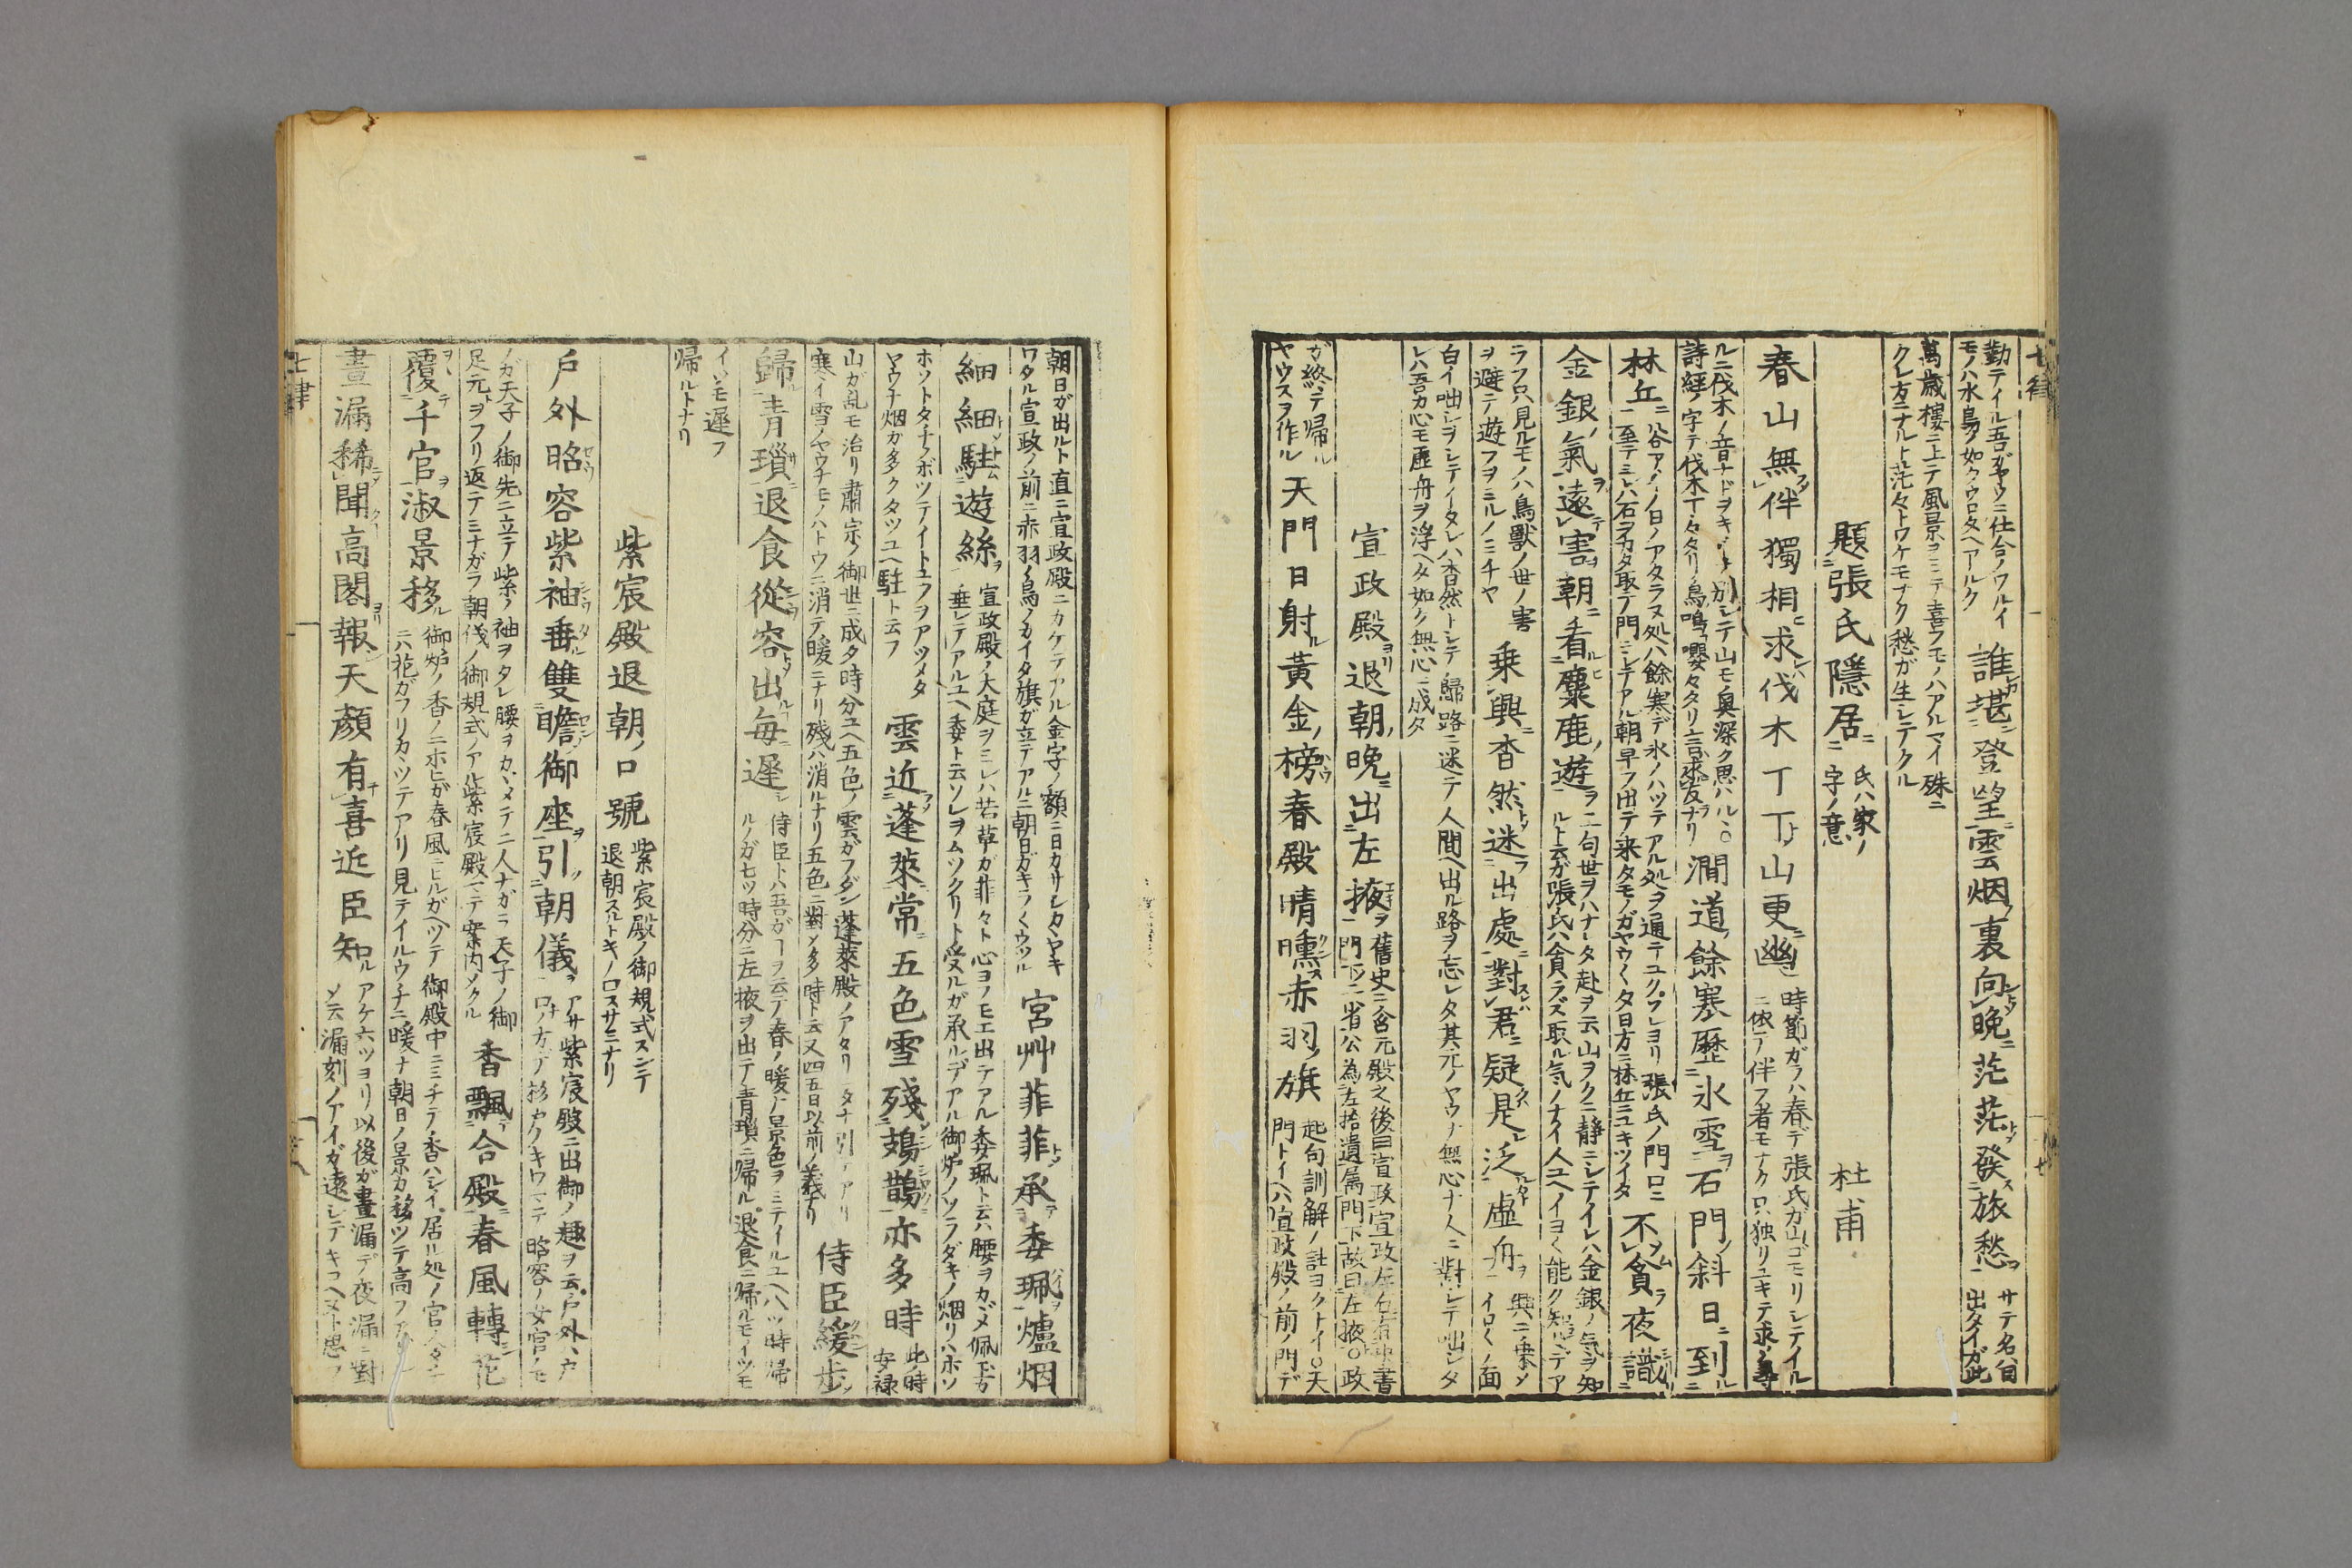 七律
勤テイル吾ガヤウニ仕合ノワルイ
モノハ水鳥ノ如クウロタヘアルク
誰堪登望雲烟裏向晩茫茫發旅愁
サテ名旨
出タイガ此
萬歳樓ニ上テ風景ヲミテ喜フモノハアルマイ殊ニ
クレ方ニナルト茫々トワケモナク愁ガ生レテクル
題張氏隱居
氏ハ家ノ
字ノ意
杜甫
春山無伴獨相求伐木丁丁山更幽
時節ガラハ春デ張氏ガ山ゴモリシテイル
ニ依テ伴フ者モナク只独リユキテ求メ尋
ルニ伐木ノ音ナドヲキ別シテ山モ奥深ク思ハル○
詩経ノ字テ伐木丁々タリ鳥鳴嚶々タリ言求友ナリ
澗道餘寒歴氷雪石門斜日到
林丘
谷アイノ日ノアタラヌ処ハ餘寒デ氷ノハツテアル処ヲ通テユク。フレヨリ張氏ノ門口ニ
至テミレハ石ヲカタ取テ門ニシテアル朝早フ出テ来タモノガヤウ〱夕日方ニ林丘ニユキツイタ
不貪夜識
金銀氣遠害朝看麋鹿遊
二句世ヲハナレタ赴ヲ云山ヲクニ静ニシテイレハ金銀ノ気ヲ知
ルト云ガ張氏ハ貪ラズ取ル気ノナイ人ユヘイヨ〱能ク知ルデア
ラフ只見ルモノハ鳥獣ノ世ノ害
ヲ避テ遊フヲミルノミチヤ
乗興杳然迷出處對君疑是泛虚舟
興ニ乗メ
イロ〱ノ面
白イ咄シヲシテイタレハ杳然トシテ歸路ニ迷テ人間ヘ出ル路ヲ忘レタ其元ノヤウナ無心ナ人ニ對シテ咄シタ
レハ吾カ心モ虚舟ヲ浮ヘタ如ク無心ニ成タ
宣政殿退朝晩出左掖
舊史ニ含元殿之後曰宣政宣政左右有中書
門下二省公為左拾遺属門下故曰左掖○政
ガ終テ帰ル
ヤウスヲ作ル
天門日射黄金榜春殿晴曛赤羽旗
起句訓解ノ註ヨクトイ○天
門トイヘハ宣政殿ノ前ノ門デ
朝日ガ出ルト直ニ宣政殿ニカケテアル金字ノ額ニ日カサレカヽヤキ
ワタル宣政ノ前ニ赤羽ノ鳥ノカイタ旗ガ立テアルニ朝日ガキラ〱ウツル
宮艸菲菲承委珮爐烟
細細駐遊絲
宣政殿ノ大庭ヲミレハ若草ガ菲々ト心ヨフモエ出テアル委珮ト云ハ腰ヲカヾメ佩玉ガ
垂レテアルユヘ委ト云ソレヲムツクリト受ルガ承ルデアル御炉ノソラダキノ烟リハホソ
ホソトタチノボツテイトユフヲアツメタ
ヤウナ烟カ多クタツユヘ駐ト云フ
雲近蓬萊常五色雪殘鳷鵲亦多時
此時
安禄
山ガ乱モ治リ肅宗ノ御世ニ成タ時分ユヘ五色ノ雲ガフダン蓬萊殿ノアタリニタナ引テアリ
寒イ雪ノヤウナモノハトウニ消テ暖ニナリ残ハ消ルナリ五色ニ對メ多時ト云又四五日以前ノ義ナリ
侍臣緩歩
歸青瑣退食從容出毎遲
侍臣トハ吾ガ一ヲ云テ春ノ暖ナ景色ヲミテイルユヘ八ツ時帰
ルノガ七ツ時分ニ左掖ヲ出テ青瑣ニ帰ル。退食ニ帰ルモイツモ
イツモ遲フ
帰ルトナリ
紫宸殿退朝ノ口號
紫宸殿ノ御規式スンデ
退朝スルトキノ口スサミナリ
戸外昭容紫袖垂雙瞻御座引朝儀
アサ紫宸殿ニ出御ノ趣ヲ云。戸外ハ戸
口ノ方デ昭容ノ女官ノモ
ノガ天子ノ御先ニ立テ紫ノ袖ヲタレ腰ヲカヽメテ二人ナガラ天子ノ御
足元ヲフリ返テミナガラ朝儀ノ御規式ノアル紫宸殿マデ案内メクル
香飄合殿春風轉花
覆千官淑景移
御炉ノ香ノニホヒガ春風ニヒルガヘツテ御殿中ニミチテ香ハシイ。居ル処ノ官人
ニハ花ガフリカヽツテアリ見テイルウチニ暖ナ朝日ノ景カ移ツテ高フ
晝漏稀聞高閣報天顔有喜近臣知
アケ六ツヨリ以後ガ晝漏デ夜漏ニ對
メ云漏刻ノアイガ遠シテキコヘヌト思フ
七律